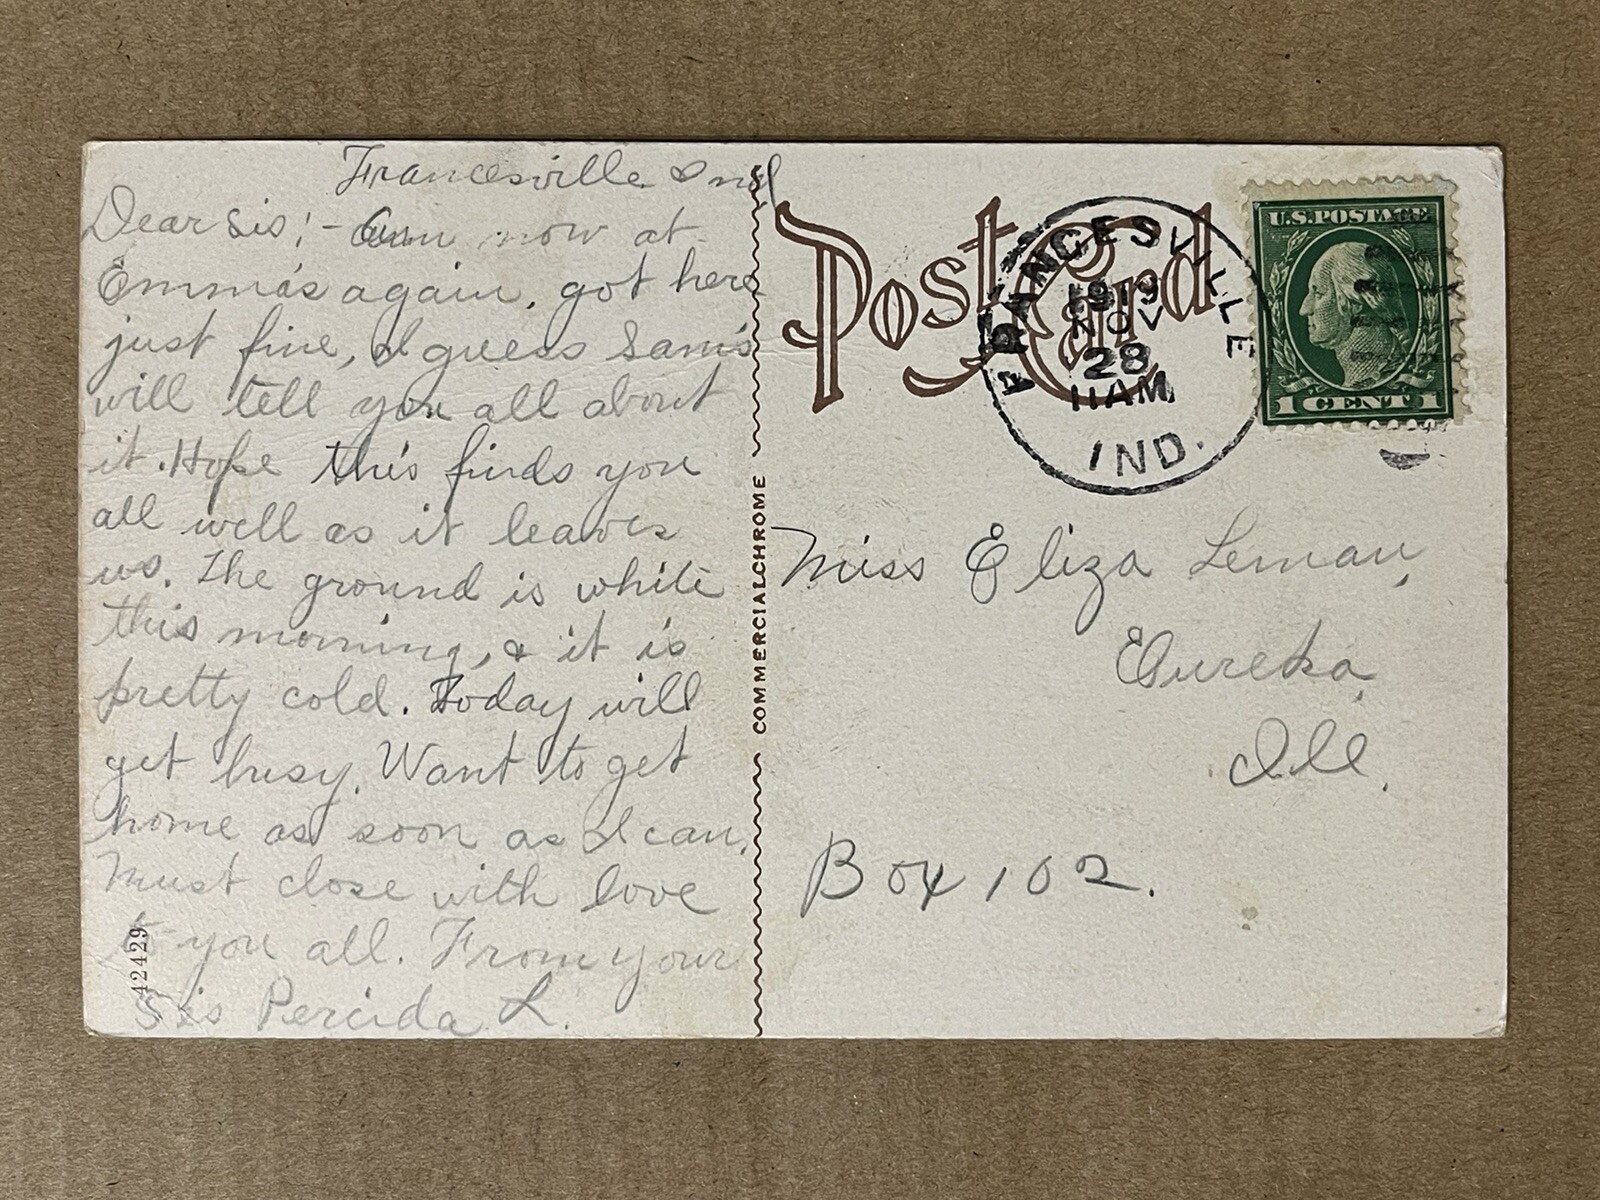 Francesville Ind
Dear Sis; - Am now at
Emma's again, got here
just fine, I guess Sam's
will tell you all about
it. Hope this finds you
all well as it leaves
us. The ground is white
this morning, & it is
pretty cold. Today will
get busy. Want to get
home as soon as I can.
Must close with love
to you all. From your
Sis Percida L.
42429
COMMERCIALCHROME
Post Card
FRANCESVILLE
1919
NOV
28
11AM
IND.
U.S. POSTAGE
1 CENT 1
Miss Eliza Leman,
Eureka,
Ill.
Box 102.